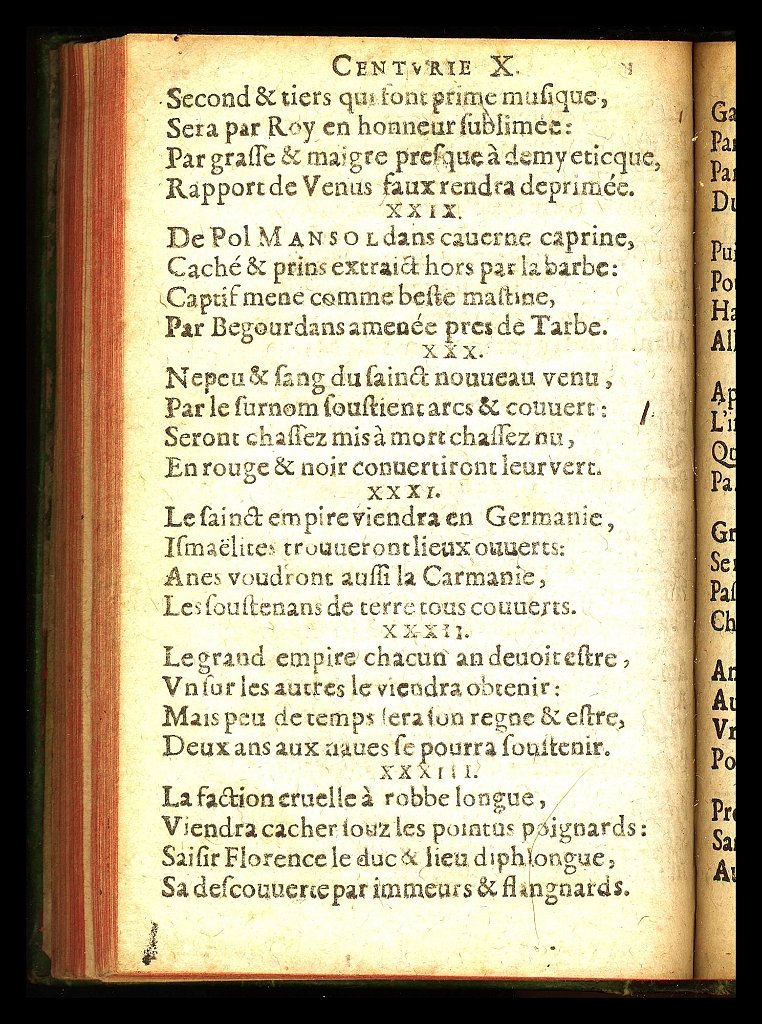 CENTVRIE X.
Second & tiers qui font prime muſique,
Sera par Roy en honneur ſublimée:
Par graſſe & maigre preſque à demy eticque,
Rapport de Venus faux rendra deprimée.
XXIX.
De Pol MANSOL dans cauerne caprine,
Caché & prins extraict hors par la barbe:
Captif mene comme beſte maſtine,
Par Begourdans amenée pres de Tarbe.
XXX.
Nepeu & ſang du ſainct nouueau venu,
Par le ſurnom ſouſtient arcs & couuert:
Seront chaſſez mis à mort chaſſez nu,
En rouge & noir conuertiront leur vert.
XXXI.
Le ſainct empire viendra en Germanie,
Iſmaëlites trouueront lieux ouuerts:
Anes voudront auſſi la Carmanie,
Les ſouſtenans de terre tous couuerts.
XXXII.
Le grand empire chacun an deuoit eſtre,
Vn ſur les autres le viendra obtenir:
Mais peu de temps ſera ſon regne & eſtre,
Deux ans aux naues ſe pourra ſouſtenir.
XXXIII.
La faction cruelle à robbe longue,
Viendra cacher ſouz les pointus poignards:
Saiſir Florence le duc & lieu diphlongue,
Sa deſcouuerte par immeurs & flangnards.
Ga
Par
Par
Du
Pui
Po
Ha
All
Ap
L'i
Qu
Pa
Gr
Se
Paſ
Ch
An
Au
Vn
Po
Pre
Sa
Au